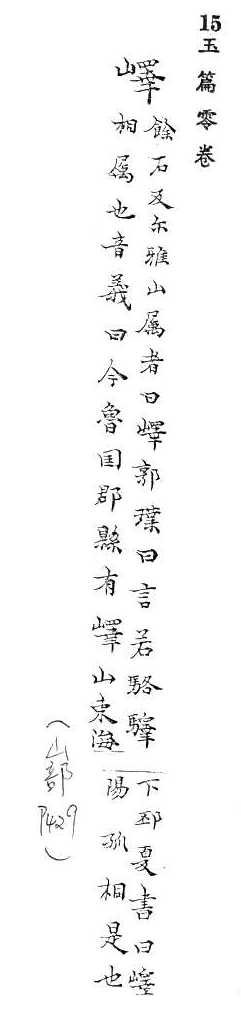 15玉篇零卷
嶧
餘石反尔雅山属者曰嶧郭璞曰言若駱驛
相属也音義曰今魯国郡縣有嶧山東海
下邳夏書曰嶧
陽孤桐是也
(山部
P429)